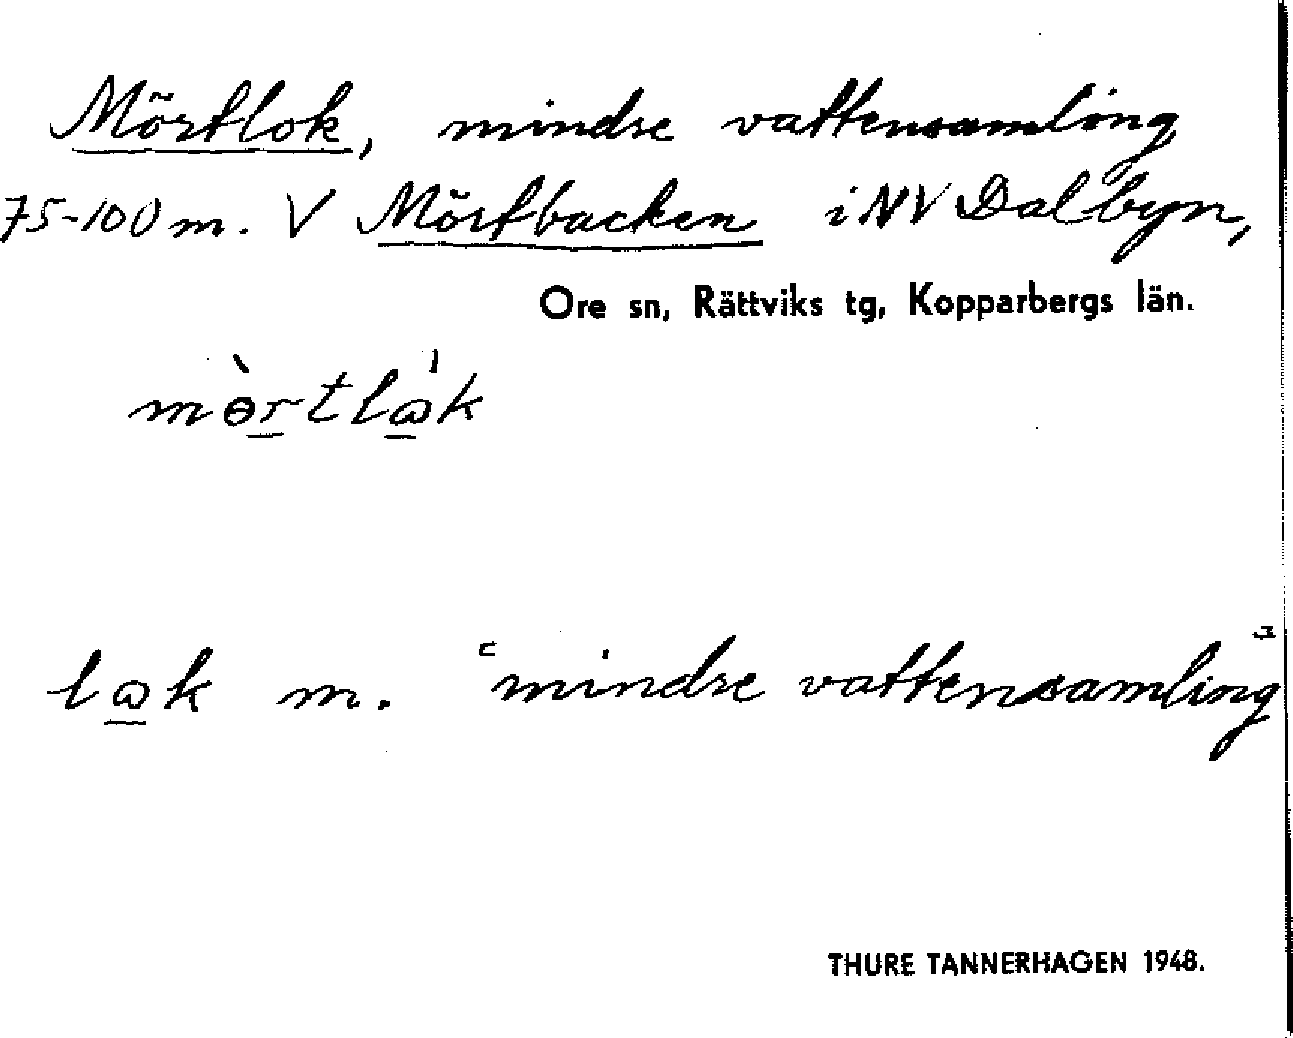 Mörtlok, mindre vattensamling
75-100 m. V Mörtbacken i NV Dalbyn,
Ore sn, Rättviks tg, Kopparbergs län.
mɵ̀r̲tlω̲̍k
lω̲k m. "mindre vattensamling"
THURE TANNERHAGEN 1948.